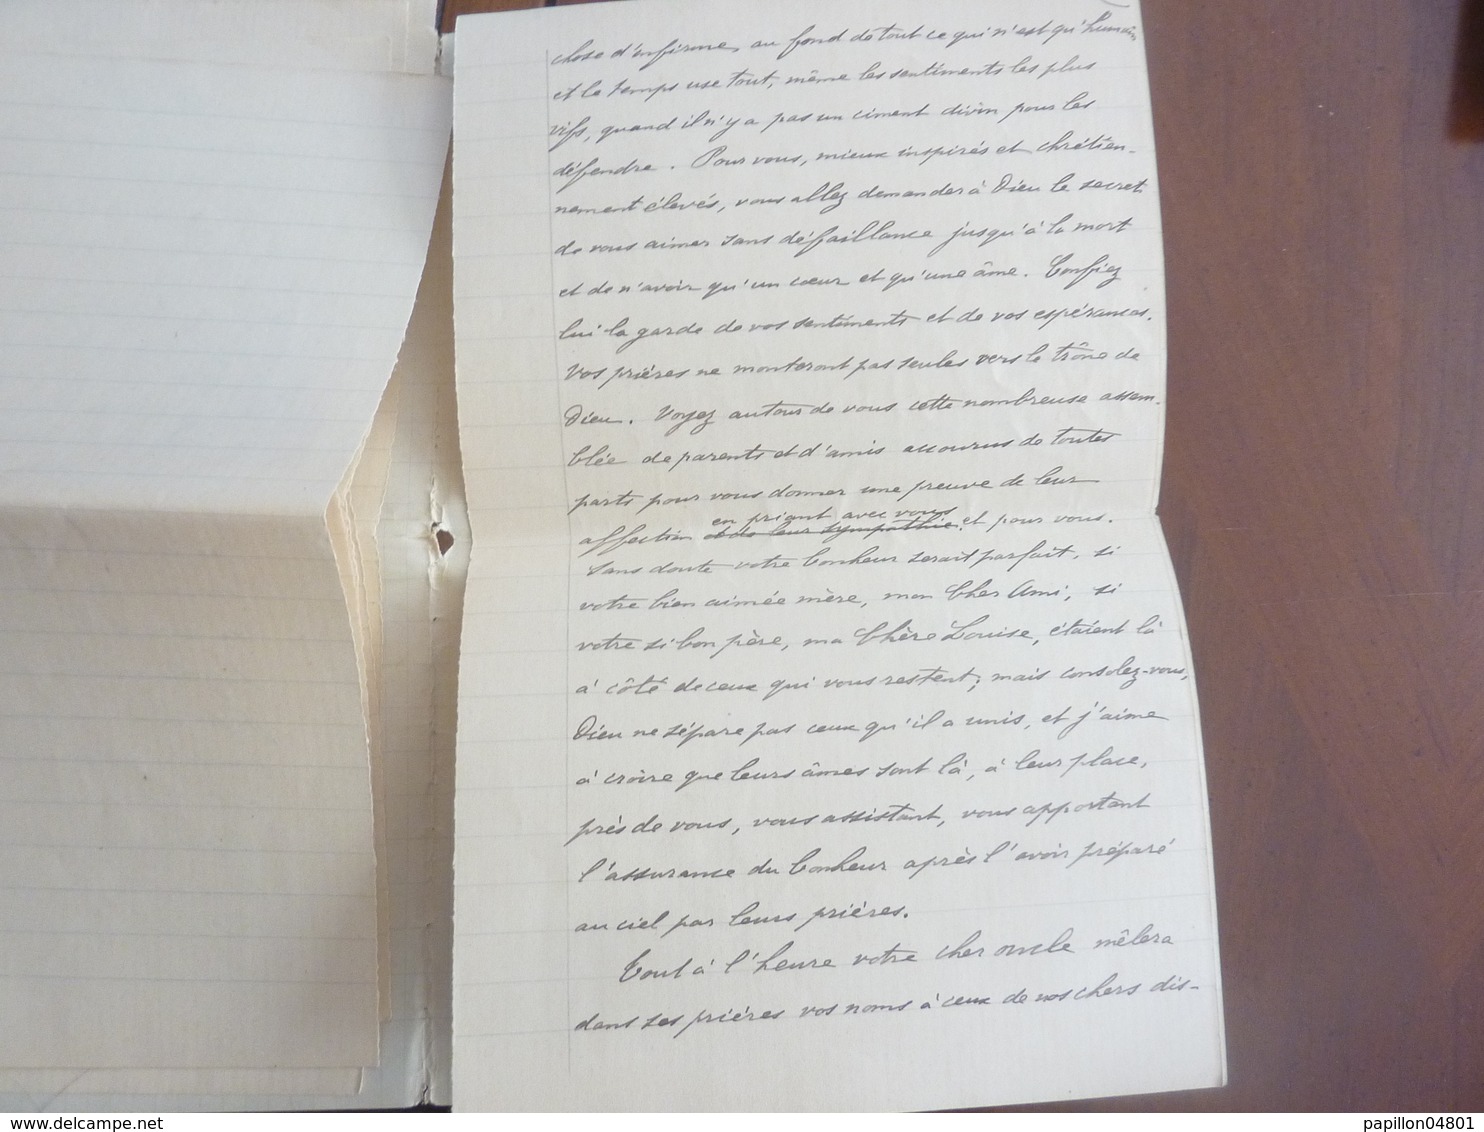 chose d'infirme, au fond de tout ce qui n'est qu'humain
et le temps use tout, même les sentiments les plus
vifs, quand il n'y a pas un ciment divin pour les
défendre. Pour vous, mieux inspirés et chrétien-
nement élevés, vous allez demander à Dieu le secret
de vous aimer sans défaillance jusqu'à la mort
et de n'avoir qu'un cœur et qu'une âme. Confiez
lui la garde de vos sentiments et de vos espérances.
Vos prières ne monteront pas seules vers le trône de
Dieu. Voyez autour de vous cette nombreuse assem-
blée de parents et d'amis accourus de toutes
parts pour vous donner une preuve de leur
en priant avec vous
affection et de leur sympathie. et pour vous.
Sans doute votre bonheur serait parfait, si
votre bien aimée mère, mon Cher Ami, si
votre si bon père, ma Chère Louise, étaient là
à côté de ceux qui vous restent; mais consolez-vous,
Dieu ne sépare pas ceux qu'il a unis, et j'aime
à croire que leurs âmes sont là, à leur place,
près de vous, vous assistant, vous apportant
l'assurance du bonheur après l'avoir préparé
au ciel par leurs prières.
Tout à l'heure votre cher oncle mêlera
dans ses prières vos noms à ceux de nos chers dis-
papillon04801